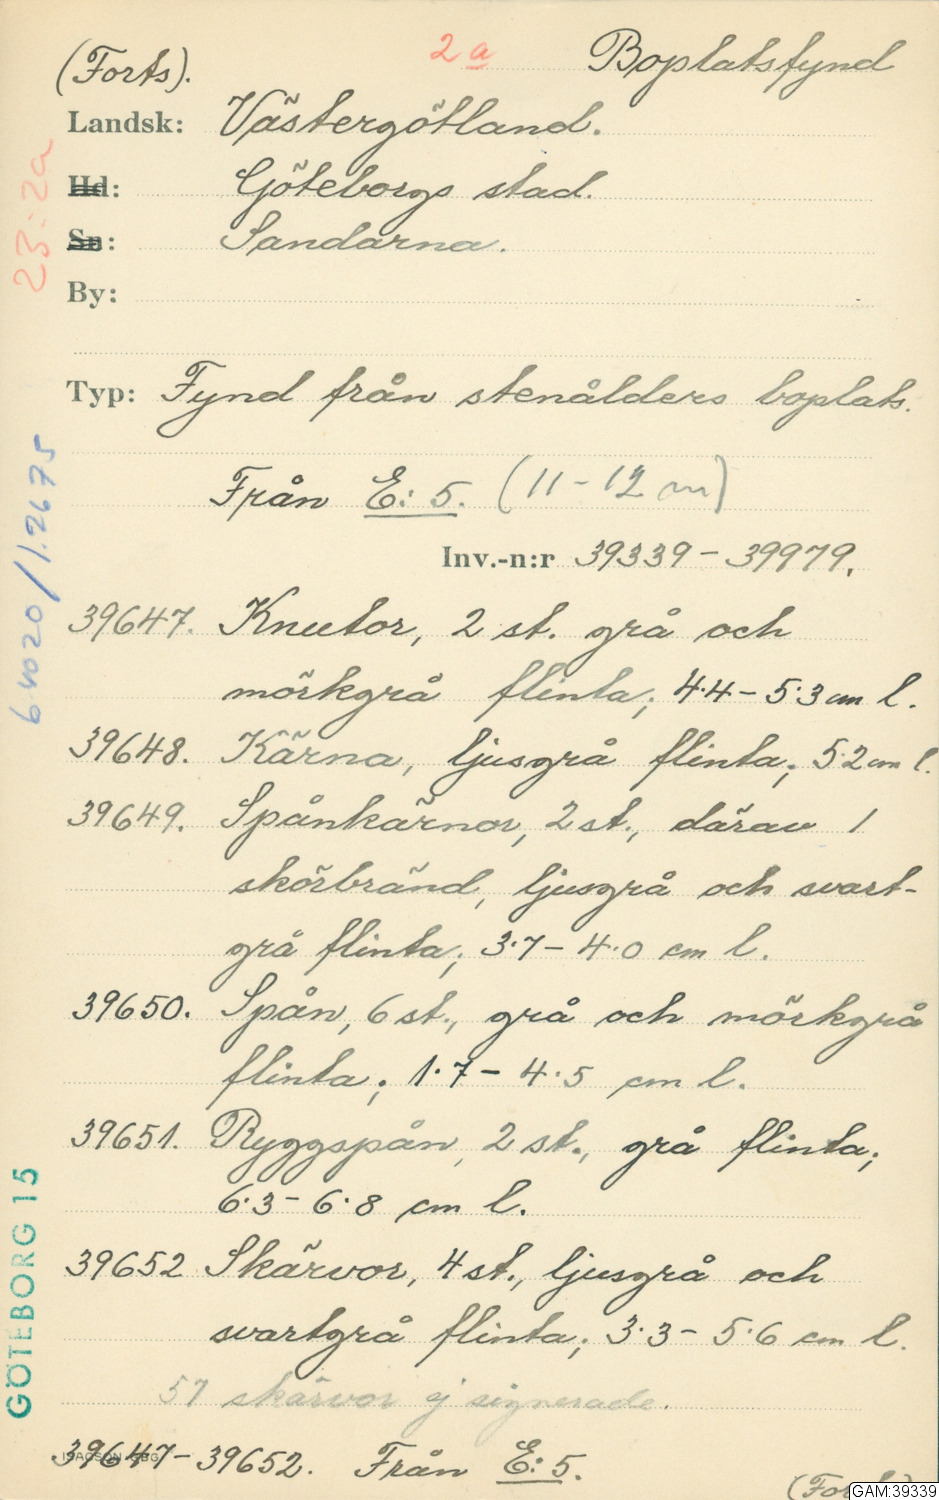 (Forts). 2a Boplatsfynd
Landsk: Västergötland.
Hd: Göteborgs stad.
Sn: Sandarna.
By:
Typ: Fynd från stenålders boplats.
Från E: 5. (11-12 m)
Inv.-n:r 39339-39979.
39647. Knutor, 2 st. grå och
mörkgrå flinta; 4.4-5.3 cm l.
39648. Kärna, ljusgrå flinta; 5.2 cm l.
39649. Spånkärnor, 2 st., därav 1
skörbränd, ljusgrå och svart-
grå flinta; 3.7-4.0 cm l.
39650. Spån, 6 st., grå och mörkgrå
flinta; 1.7-4.5 cm l.
39651. Ryggspån, 2 st., grå flinta;
6.3-6.8 cm l.
39652 Skärvor, 4 st., ljusgrå och
svartgrå flinta; 3.3-5.6 cm l.
57 skärvor ej signerade.
39647-39652. Från E: 5.
23:2a
GÖTEBORG 15
GAM:39339